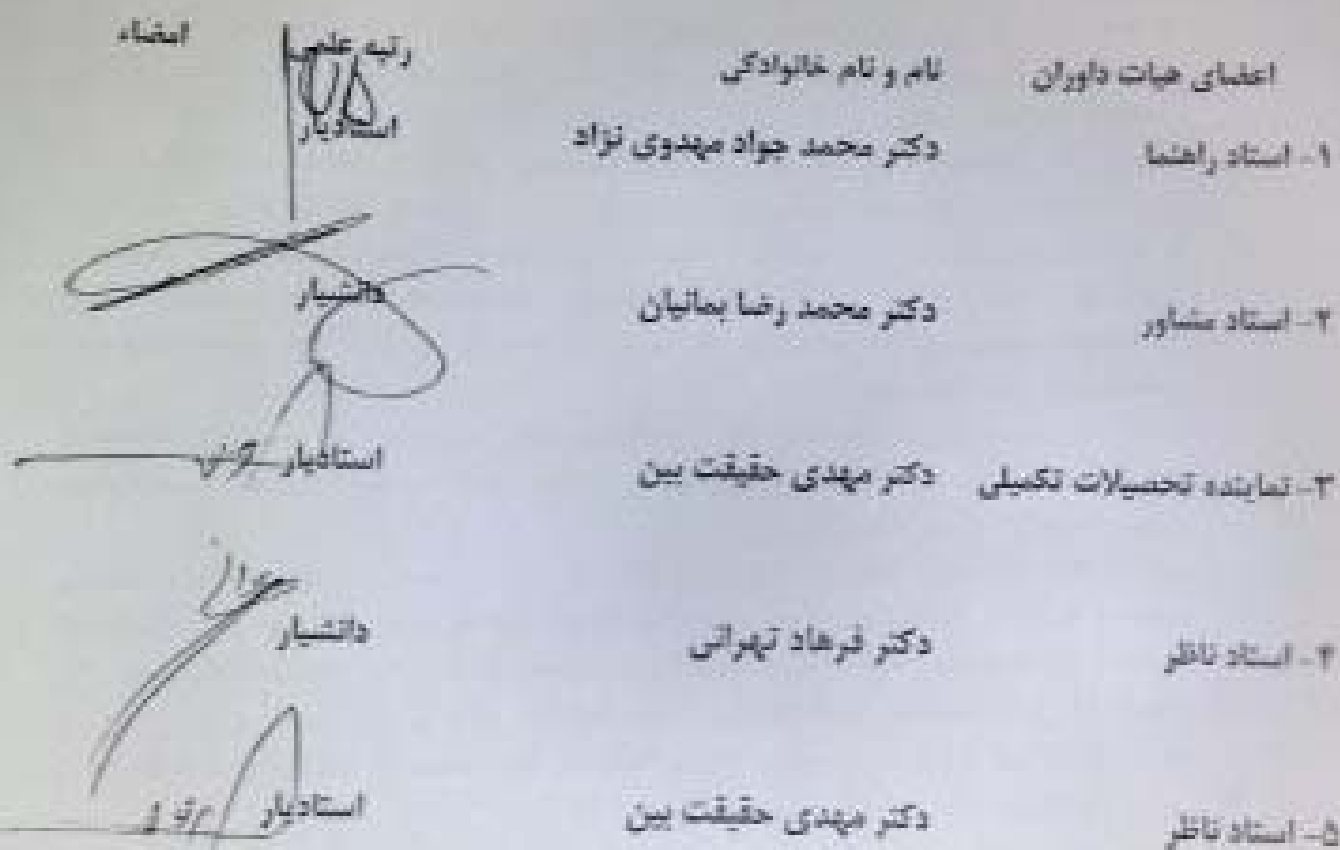 اعضای هیات داوران نام و نام خانوادگی رتبه علمی امضاء
۱- استاد راهنما دکتر محمد جواد مهدوی نژاد استادیار
۲- استاد مشاور دکتر محمد رضا بمانیان دانشیار
۳- نماینده تحصیلات تکمیلی دکتر مهدی حقیقت بین استادیار
۴- استاد ناظر دکتر فرهاد تهرانی دانشیار
۵- استاد ناظر دکتر مهدی حقیقت بین استادیار